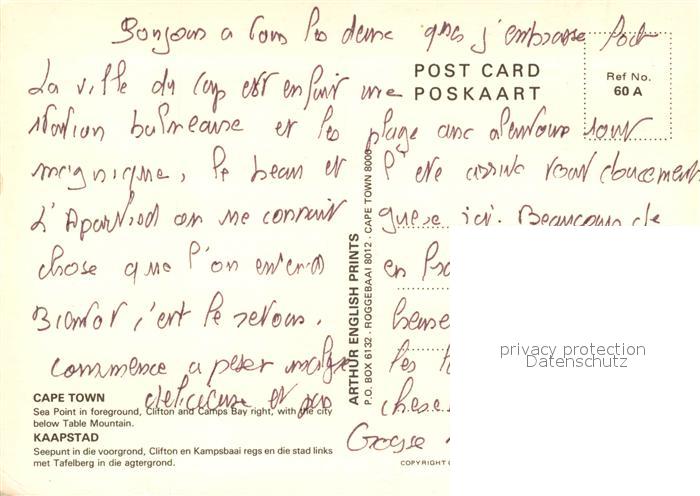 Bonjour a tous les deux que j'embrasse fort
La ville du Cap est en fait une
station balneaire et les plage aux alentours sont
magnifique, le beau et l'ete arrive tout doucement
L'Apartied on ne connait guere ici. Beaucoup de
chose que l'on entend en
Bientot c'est le retour. heure
commence a peser malgre les
delicieuse et pas chere.
Grosse
POST CARD
POSKAART
Ref No.
60 A
ARTHUR ENGLISH PRINTS
P.O. BOX 6132 . ROGGEBAAI 8012 . CAPE TOWN 8000
CAPE TOWN
Sea Point in foreground, Clifton and Camps Bay right, with the city
below Table Mountain.
KAAPSTAD
Seepunt in die voorgrond, Clifton en Kampsbaai regs en die stad links
met Tafelberg in die agtergrond.
COPYRIGHT
privacy protection
Datenschutz